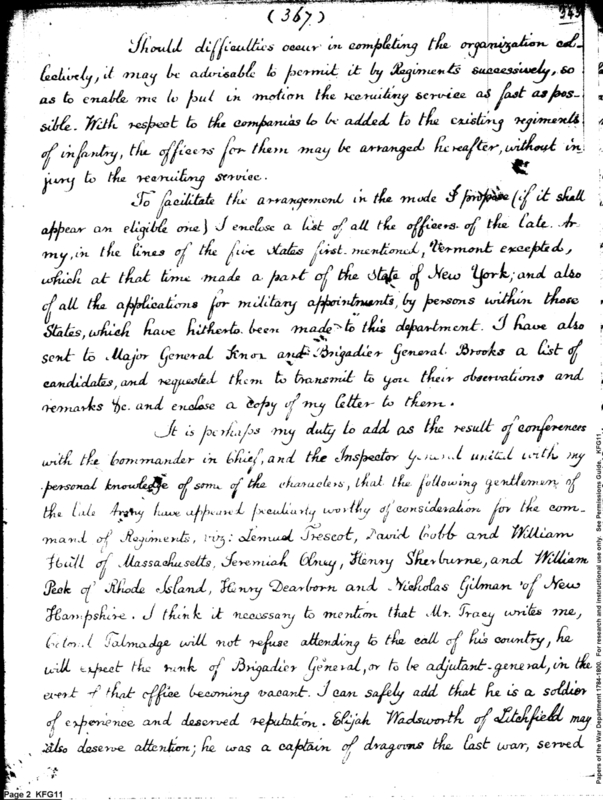 (367)
343
Should difficulties occur in completing the organization col-
lectively, it may be advisable to permit it by Regiments successively, so
as to enable me to put in motion the recruiting service as fast as pos-
sible. With respect to the companies to be added to the existing regiments
of infantry, the officers for them may be arranged hereafter, without in
jury to the recruiting service.
To facilitate the arrangement in the mode I propose (if it shall
appear an eligible one) I enclose a list of all the officers of the late Ar
my, in the lines of the five states first mentioned, Vermont excepted,
which at that time made a part of the State of New York; and also
of all the applications for military appointments, by persons within those
States, which have hitherto been made to this department. I have also
sent to Major General Knox and Brigadier General Brooks a list of
candidates, and requested them to transmit to you their observations and
remarks &c. and enclose a copy of my letter to them.
It is perhaps my duty to add as the result of conferences
with the Commander in Chief, and the Inspector General united with my
personal knowledge of some of the characters, that the following gentlemen of
the late Army have appeared peculiarly worthy of consideration for the com-
mand of Regiments, viz: Lemuel Trescot, David Cobb and William
Hull of Massachusetts, Jeremiah Olney, Henry Sherburne, and William
Peck of Rhode Island, Henry Dearborn and Nicholas Gilman of New
Hampshire. I think it necessary to mention that Mr. Tracy writes me,
Colonel Talmadge will not refuse attending to the call of his country, he
will expect the rank of Brigadier General, or to be adjutant-general, in the
event of that office becoming vacant. I can safely add that he is a soldier
of experience and deserved reputation. Elijah Wadsworth of Litchfield may
also deserve attention; he was a captain of dragoons the last war, served
Page 2 KFG11
Papers of the War Department 1784-1800. For research and instructional use only. See Permissions Guide. KFG11